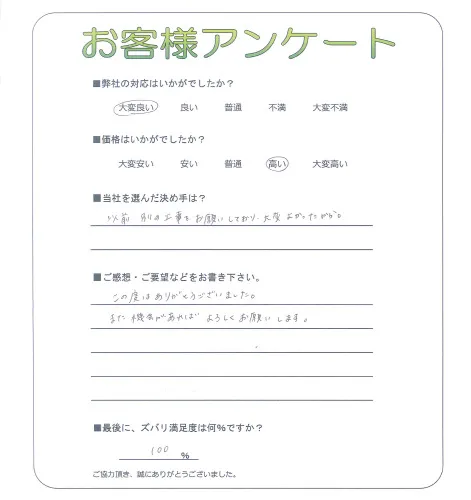 お客様アンケート
■弊社の対応はいかがでしたか？
大変良い 良い 普通 不満 大変不満
■価格はいかがでしたか？
大変安い 安い 普通 高い 大変高い
■当社を選んだ決め手は？
以前 別の工事をお願いしており、大変よかったから。
■ご感想・ご要望などをお書き下さい。
この度はありがとうございました。
また機会があればよろしくお願いします。
■最後に、ズバリ満足度は何%ですか？
100 %
ご協力頂き、誠にありがとうございました。